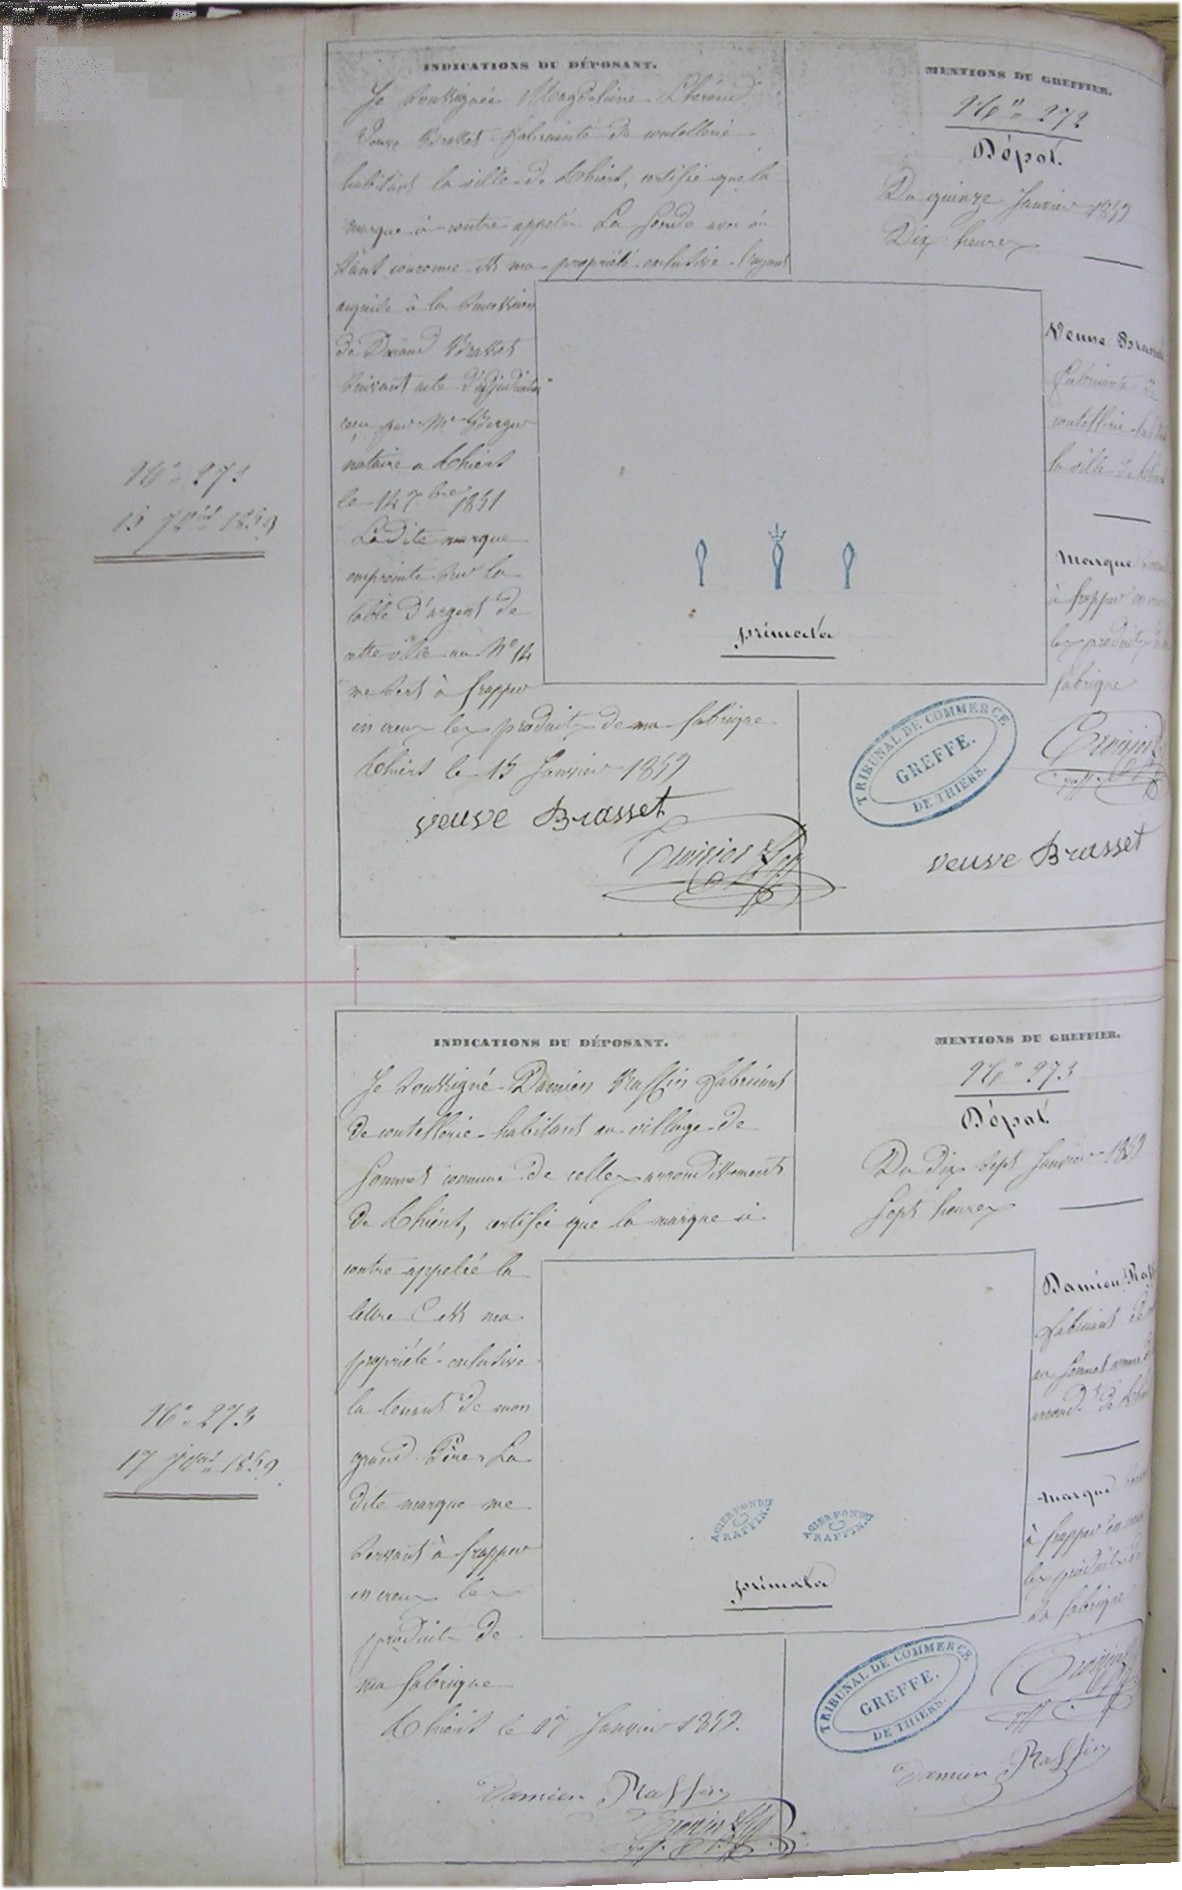 INDICATIONS DU DÉPOSANT.
Je soussignée Magdeleine
Veuve Brasset fabricante de coutellerie
habitant la ville de Thiers, certifie que la
marque ci contre appelée La Sonde avec ou
sans couronne est ma propriété exclusive l'ayant
acquise à la succession
de Durand Brasset
suivant acte d'adjudication
reçu par Me
notaire a Thiers
le 14 7bre 1851
Ladite marque
empreinte sur la
table d'argent de
cette ville au No 14
me sert à frapper
en creux les produits de ma fabrique
Thiers le 15 Janvier 1859
veuve Brasset
MENTIONS DU GREFFIER.
No 272
Dépot.
Du quinze Janvier 1859
Dix heures
Veuve
fabricante de
coutellerie
la ville de
Marque
à frapper en
les produits
fabrique
TRIBUNAL DE COMMERCE
GREFFE.
DE THIERS.
veuve Brasset
primata
No 272
15 Jvier 1859
INDICATIONS DU DÉPOSANT.
Je soussigné Damien Raffin fabricant
de coutellerie habitant au village de
Sommet commune de Celles arrondissement
de Thiers, certifie que la marque ci
contre appelée la
lettre C est ma
propriété exclusive
la tenant de mon
grand Père. La
dite marque me
servant à frapper
en creux les
produits de
ma fabrique
Thiers le 17 Janvier 1859.
Damien Raffin
MENTIONS DU GREFFIER.
No 273
Dépot
Du dix sept Janvier 1859
Sept heures
Damien
fabricant de
au Sommet
arrond.t de
Marque
à frapper en
les produits
sa fabrique
TRIBUNAL DE COMMERCE
GREFFE.
DE THIERS.
Damien Raffin
ACIER FONDU
C
RAFFIN
ACIER FONDU
C
RAFFIN
primata
No 273
17 Jvier 1859